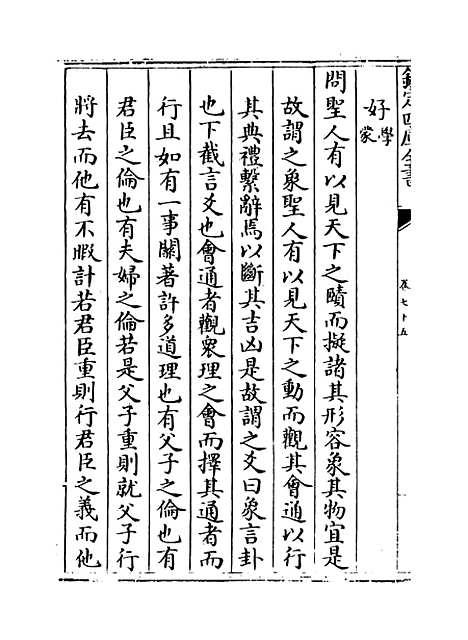 欽定四庫全書
卷七十五
好學
蒙
問聖人有以見天下之賾而擬諸其形容象其物宜是
故謂之象聖人有以見天下之動而觀其會通以行
其典禮繫辭焉以斷其吉凶是故謂之爻曰象言卦
也下截言爻也會通者觀衆理之會而擇其通者而
行且如有一事關著許多道理也有父子之倫也有
君臣之倫也有夫婦之倫若是父子重則就父子行
將去而他有不暇計若君臣重則行君臣之義而他